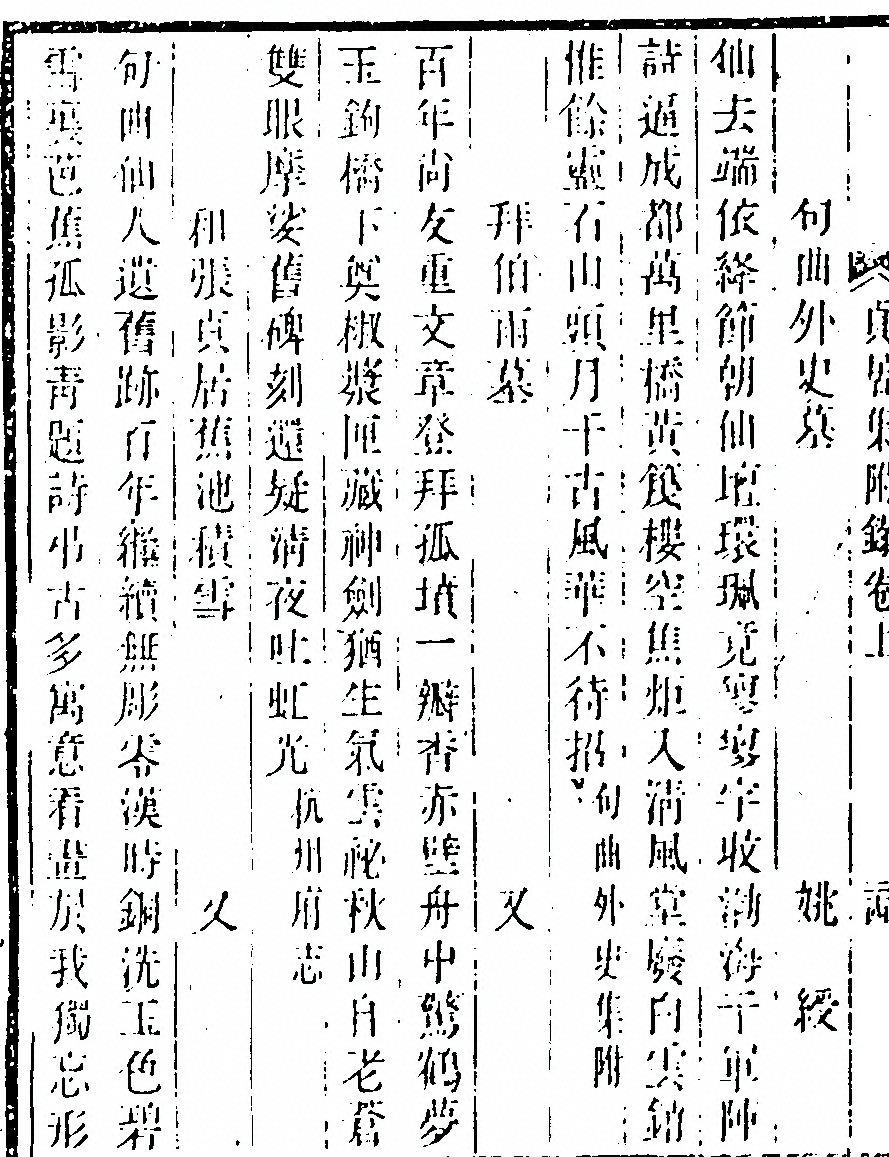 貞居集附錄卷上
句曲外史墓 姚綬
仙去端依絳節朝仙壇環珮竟寥寥字收渤海千軍陣
詩逼成都萬里橋黃篾樓空焦炬入淸風堂廢白雲銷
惟餘靈石山頭月千古風華不待招 句曲外史集附
拜伯雨墓 又
百年尚友重文章登拜孤墳一瓣香赤壁舟中驚鶴夢
玉鉤橋下奠椒漿匣藏神劍猶生氣雲祕秋山自老蒼
雙眼摩娑舊碑刻還疑淸夜吐虹光 杭州府志
和張貞居蕉池積雪 又
句曲仙人遺舊跡百年繼續無彫零漢時銅洗玉色碧
雪裏芭蕉孤影靑題詩弔古多寓意看畫於我獨忘形